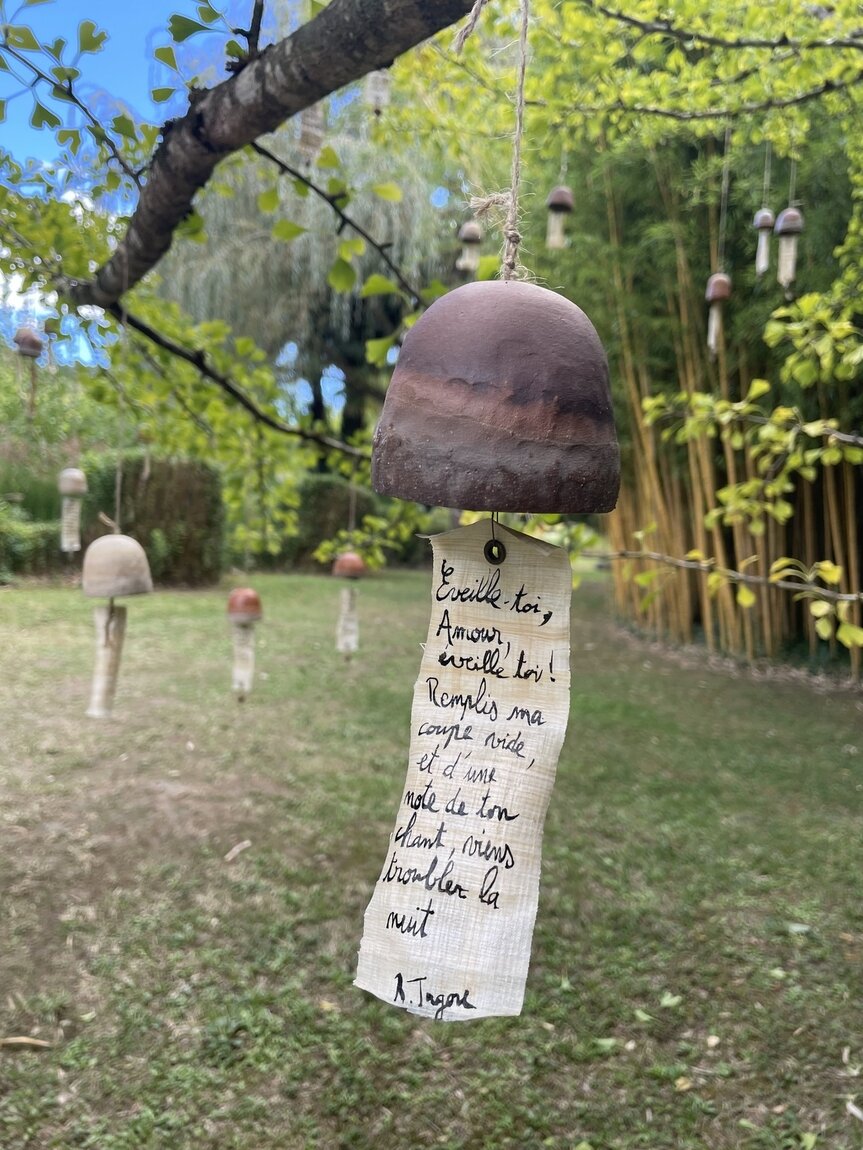 Eveille-toi,
Amour,
éveille toi !
Remplis ma
coupe vide,
et d'une
note de ton
chant, viens
troubler la
nuit
R. Tagore